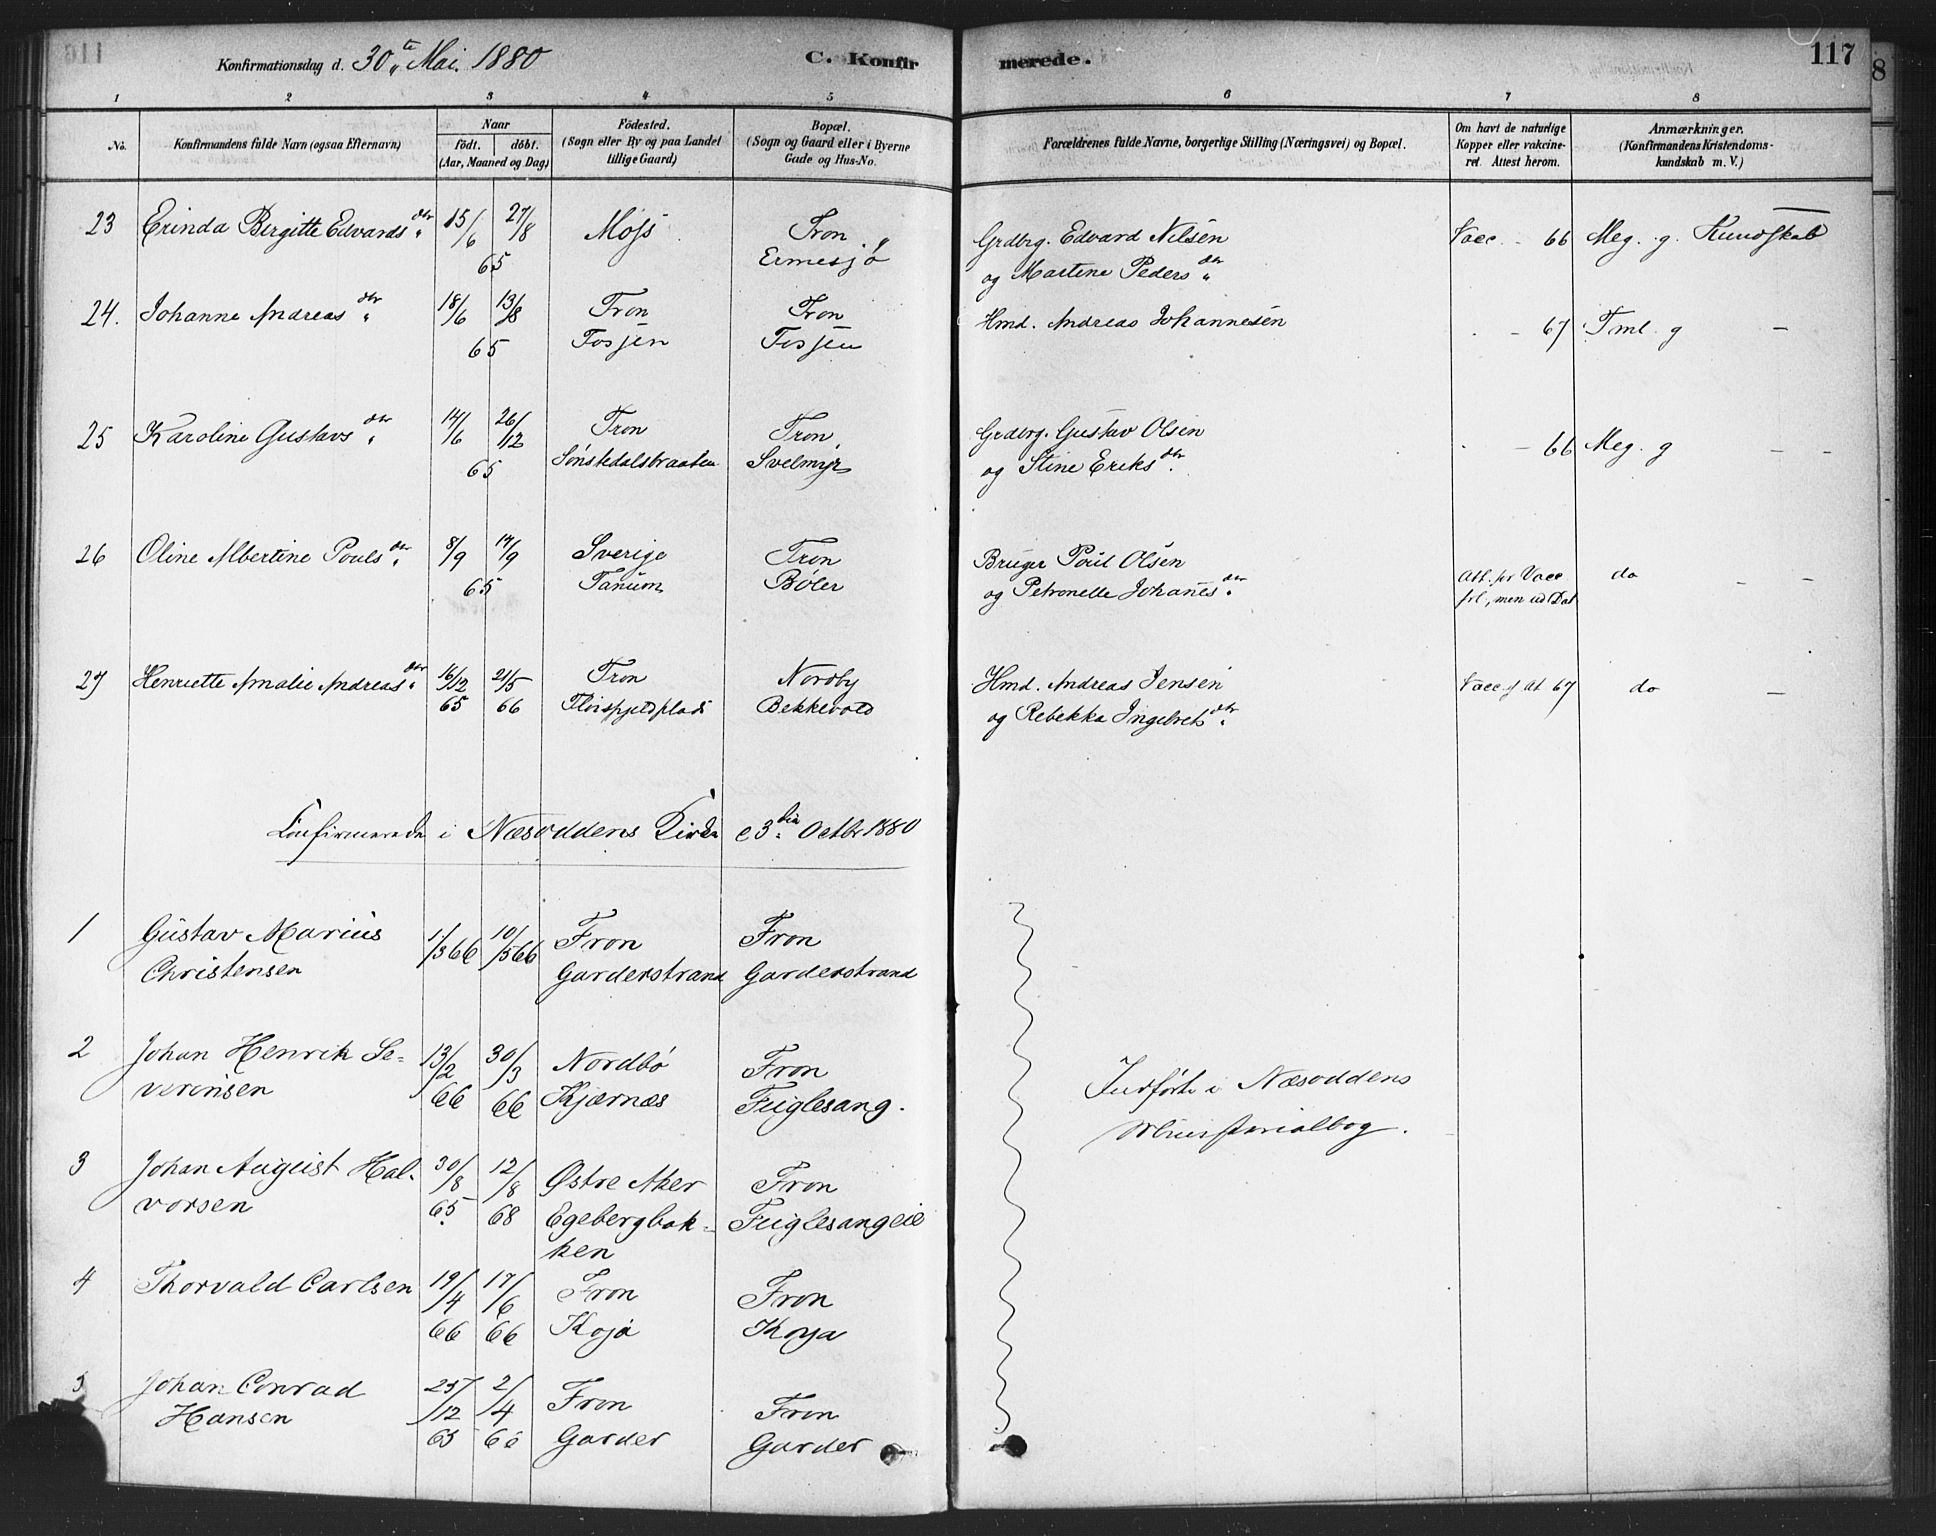 Konfirmationsdag d. 30te Mai. 1880 C. Konfirmerede. 117
1 2 3 4 5 6 7 8
No. Konfirmandens fulde Navn (ogsaa Efternavn) Naar født. døbt. (Aar, Maaned og Dag) Fødested. (Sogn eller By og paa Landet tillige Gaard) Bopæl. (Sogn og Gaard eller i Byerne Gade og Hus-No. Forældrenes fulde Navne, borgerlige Stilling (Næringsvei) og Bopæl. Om havt de naturlige Kopper eller vakcineret. Attest herom. Anmærkninger. (Konfirmandens Kristendomskundskab m. V.)
23 Erinda Birgitte Edvardsdtr 15/6 27/8 Moss Fron Grdbrg. Edvard Nilsen Vacc. - 66 Meg. g. Kundskab
65 Ermesjø og Martine Pedersdtr
24. Johanne Andreasdtr 18/6 13/8 Fron Fron Hmd. Andreas Johannesen - 67 Tml. g -
65 Fosjen Fosjen
25 Karoline Gustavsdtr 14/6 26/12 Fron Fron Grdbrg. Gustav Olsen - 66 Meg. g - -
65 Sønskedalsbraaten Svelmyr og Stine Eriksdtr.
26 Oline Albertine Poulsdtr 8/9 14/9 Sverige Fron Bruger Poul Olsen
65 Tanum Bøler og Petronelle Johanesdtr. Att. for Vacc. do - -
frl, men ud Dat
27 Henriette Amalie Andreasdtr 16/12 21/5 Fron Nordby Hmd. Andreas Jensen Vacc. At 67 do -
65 66 Fløispjeldplads Bekkevold og Rebekka Ingebretsdtr.
Confirmerede i Næsoddens Kirke 3die Octbr 1880
1 Gustav Marius 1/3 66 10/5 66 Fron Fron
Christensen Garderstrand Garderstrand
2 Johan Henrik Se- 13/2 30/3 Nordbø Fron
verinsen 66 66 Kjærnæs Fuglesang.
Indførte i Næsoddens
Ministerialbog.
3 Johan August Hal- 30/8 12/8 Østre Aker Fron
vorsen 65 68 Egebergbak- Fuglesangeie
ken
4 Thorvald Carlsen 19/4 17/6 Fron Fron
66 66 Koja Koya
5 Johan Conrad 25/12 2/4 Fron Fron
Hansen 65 66 Garder Garder